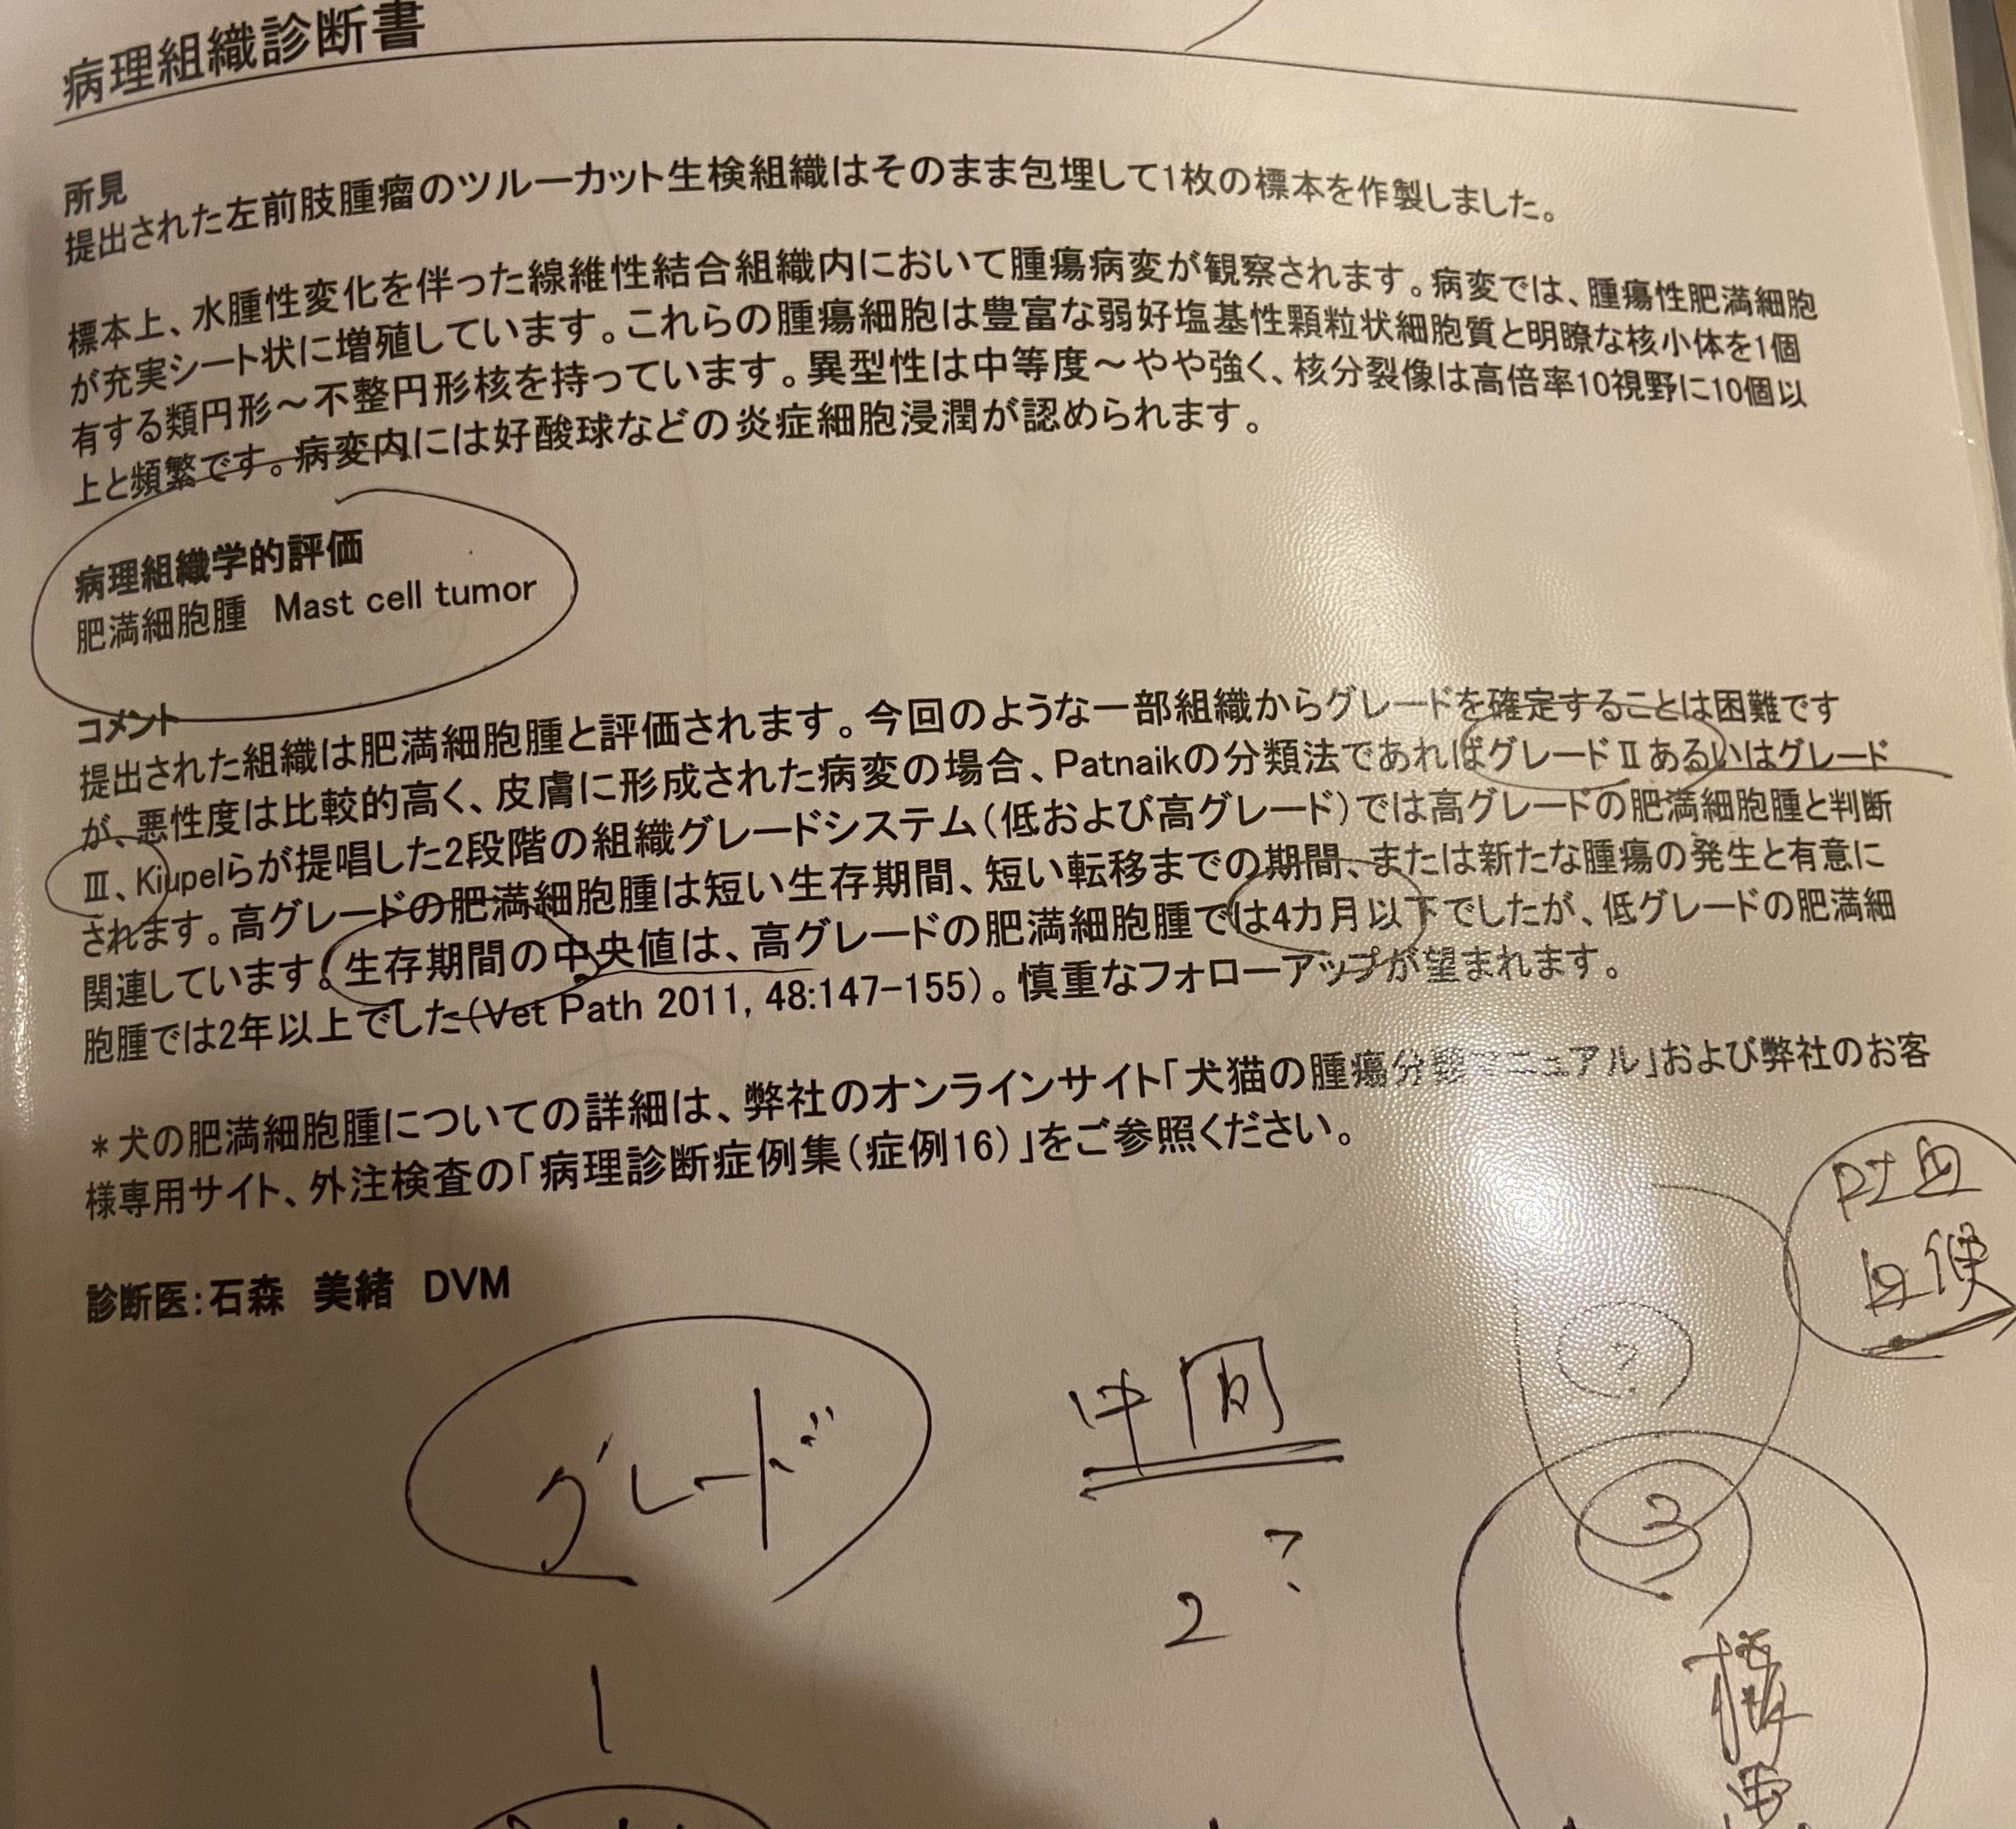 病理組織診断書
所見
提出された左前肢腫瘤のツルーカット生検組織はそのまま包埋して1枚の標本を作製しました。
標本上、水腫性変化を伴った線維性結合組織内において腫瘍病変が観察されます。病変では、腫瘍性肥満細胞
が充実シート状に増殖しています。これらの腫瘍細胞は豊富な弱好塩基性顆粒状細胞質と明瞭な核小体を1個
有する類円形～不整円形核を持っています。異型性は中等度～やや強く、核分裂像は高倍率10視野に10個以
上と頻繁です。病変内には好酸球などの炎症細胞浸潤が認められます。
病理組織学的評価
肥満細胞腫 Mast cell tumor
コメント
提出された組織は肥満細胞腫と評価されます。今回のような一部組織からグレードを確定することは困難です
が、悪性度は比較的高く、皮膚に形成された病変の場合、Patnaikの分類法であればグレードⅡあるいはグレード
Ⅲ、Kiupelらが提唱した2段階の組織グレードシステム(低および高グレード)では高グレードの肥満細胞腫と判断
されます。高グレードの肥満細胞腫は短い生存期間、短い転移までの期間、または新たな腫瘍の発生と有意に
関連しています。生存期間の中央値は、高グレードの肥満細胞腫では4カ月以下でしたが、低グレードの肥満細
胞腫では2年以上でした(Vet Path 2011, 48:147-155)。慎重なフォローアップが望まれます。
*犬の肥満細胞腫についての詳細は、弊社のオンラインサイト「犬猫の腫瘍分類マニュアル」および弊社のお客
様専用サイト、外注検査の「病理診断症例集(症例16)」をご参照ください。
診断医:石森 美緒 DVM
吐血
血便
グレード
中間
?
3
2
?
1